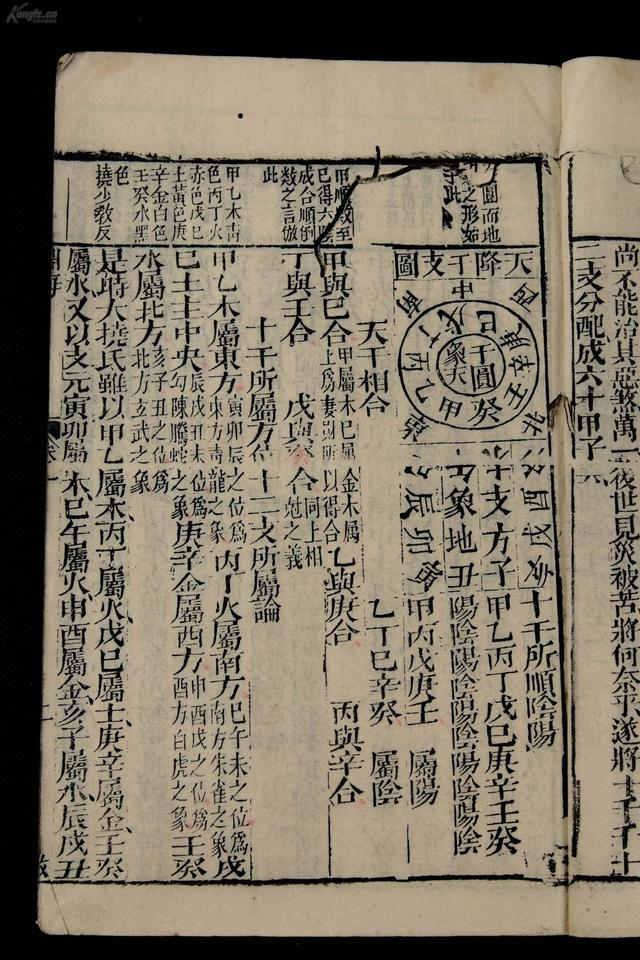 尚不能治其惡煞萬一後世見災被苦將何奈乎遂將十干十
二支分配成六十甲子
圓而地
之形如
此
甲順數至
巳得六數
成合順倒
數之言倣
此
甲乙木青
色丙丁火
赤色戊巳
土黃色庚
辛金白色
壬癸水黑
色
撓少敎反
天降干支圖
干圓
象天
十支方
象地
十干所順陰陽
甲乙丙丁戊巳庚辛壬癸
陽陰陽陰陽陰陽陰陽陰
甲丙戊庚壬 屬陽
乙丁巳辛癸 屬陰
天干相合
甲與巳合 甲屬木巳屬土 金木屬 乙與庚合 丙與辛合
丁與壬合 戊與癸合 同上相尅之義
十干所屬方位 十二支所屬論
甲乙木屬東方 寅卯辰之位爲東方靑龍之象 丙丁火屬南方 巳午未之位爲南方朱雀之象 戊
巳土主中央 辰戌丑未之位爲勾陳螣蛇之象 庚辛金屬西方 申酉戌之位爲西方白虎之象 壬癸
水屬北方 亥子丑之位爲北方玄武之象
是時大撓氏雖以甲乙屬木丙丁屬火戊巳屬土庚辛屬金壬癸
屬水又以支元寅卯屬木巳午屬火申酉屬金亥子屬水辰戌丑
淵海
卷一
二
Kongfz.cn